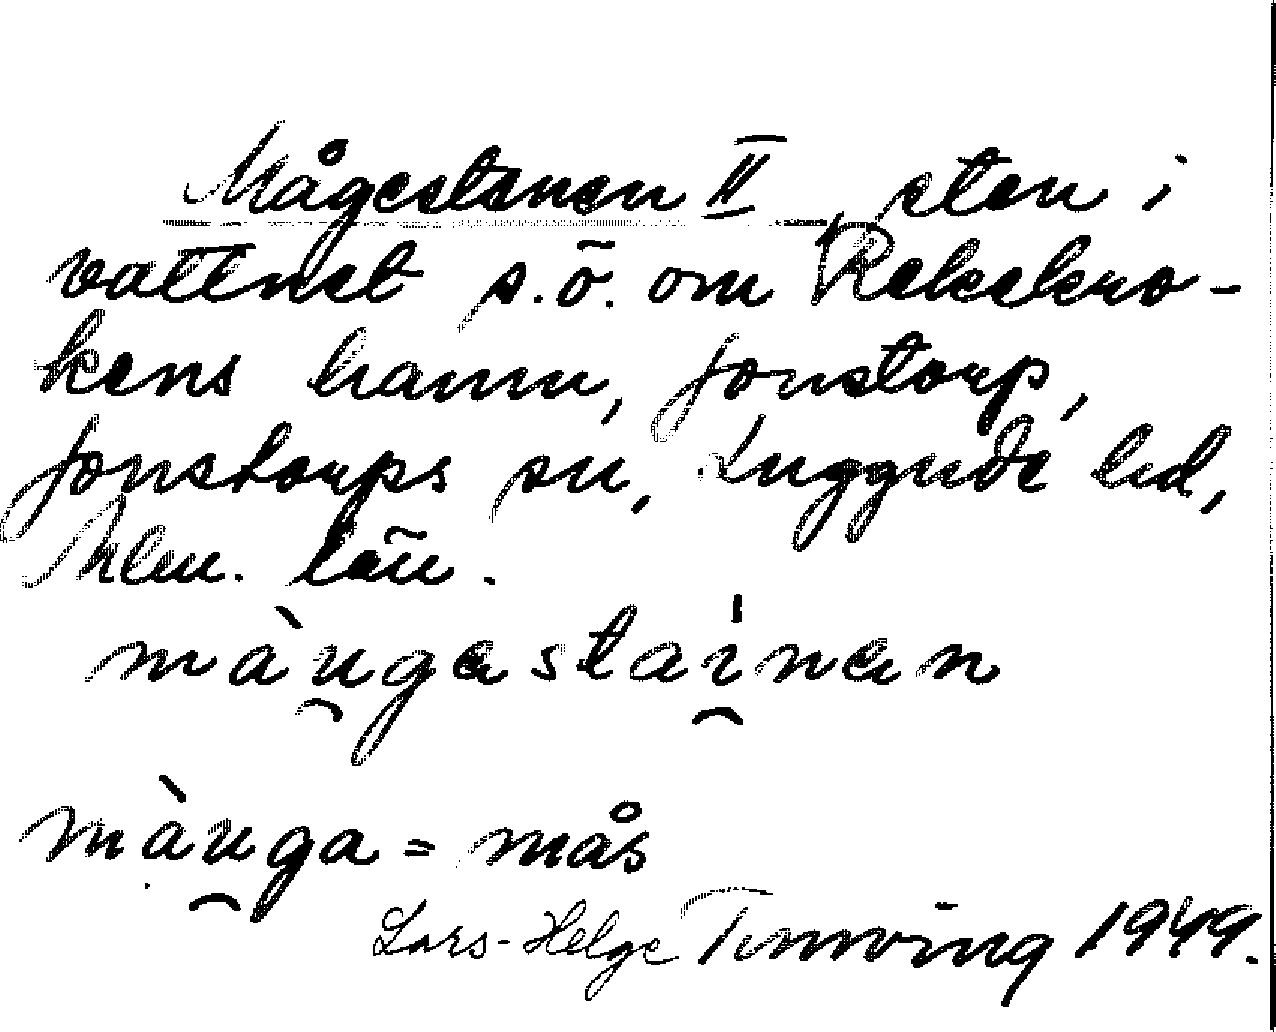 Mågestenen II, sten i
vattnet s.ö. om Rekekro-
kens hamn, Jonstorp,
Jonstorps sn, Luggude hd,
Mlm. län.
màu̯gastai̯nen
màu̯ga = mås
Lars-Helge 1949.